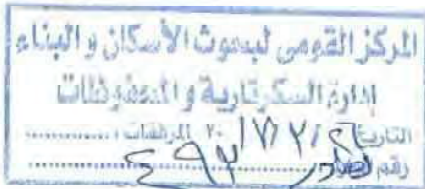 المركز القومى لبحوث الأسكان والبناء
إدارة السكرتارية والمحفوظات
التاريخ / ٢ / ٢٠١٧ المرفقات : ..............
رقم ٤٩٣